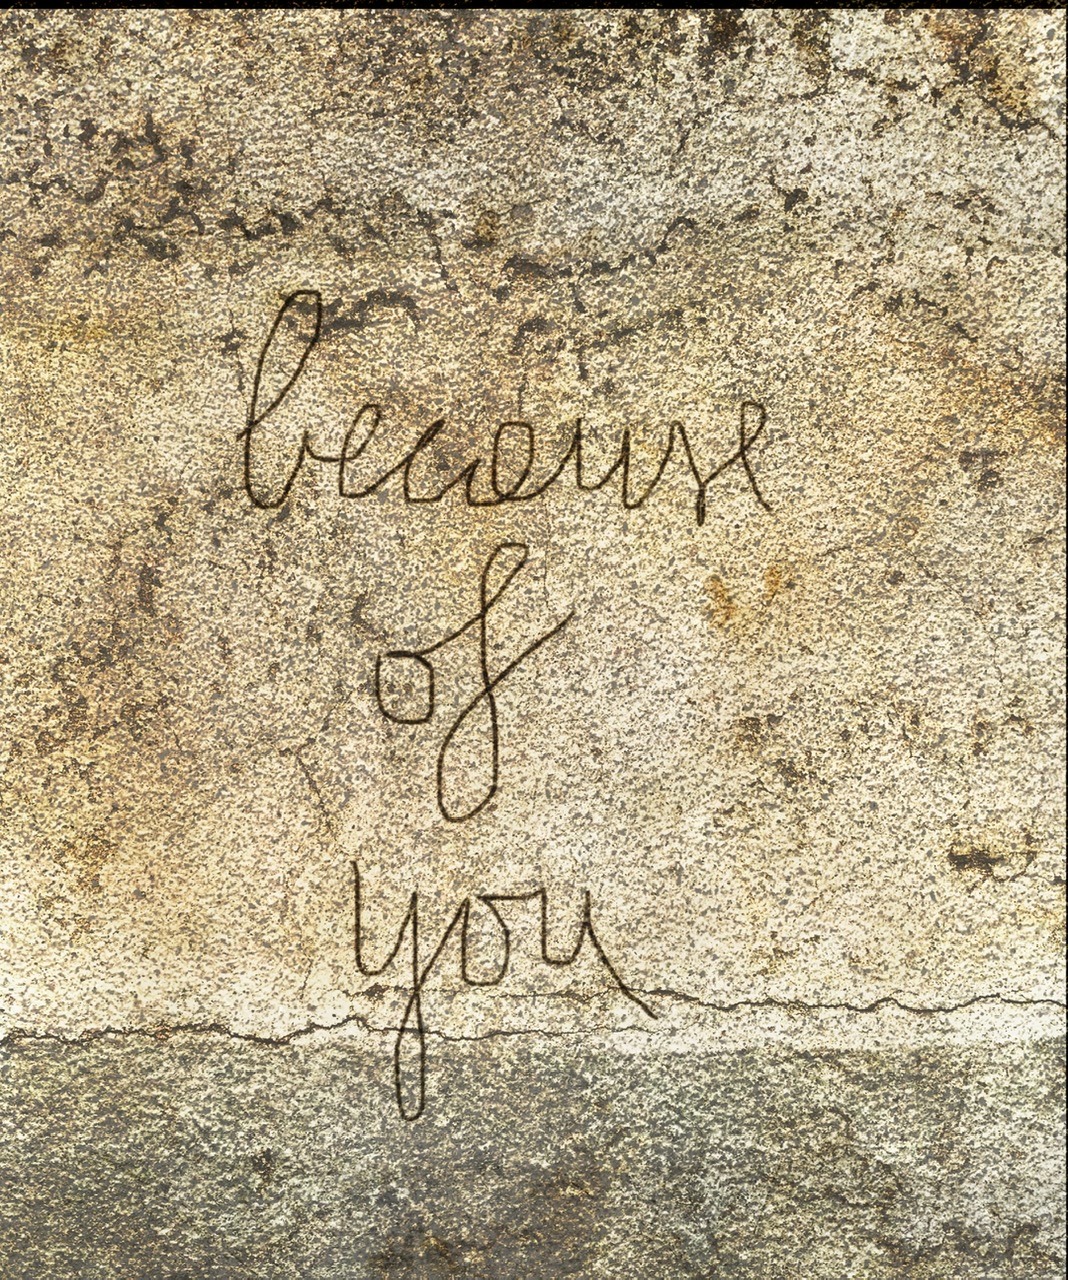 because
of
you